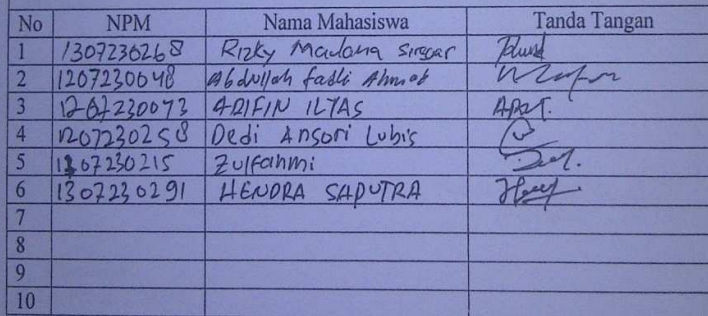 No NPM Nama Mahasiswa Tanda Tangan
1 1307230268 Rizky Maulana Siregar
2 1207230048 Abdullah fadli Ahmad
3 1207230073 ARIFIN ILYAS
4 1207230258 Dedi Ansori Lubis
5 1307230215 Zulfahmi
6 1307230291 HENDRA SAPUTRA
7
8
9
10